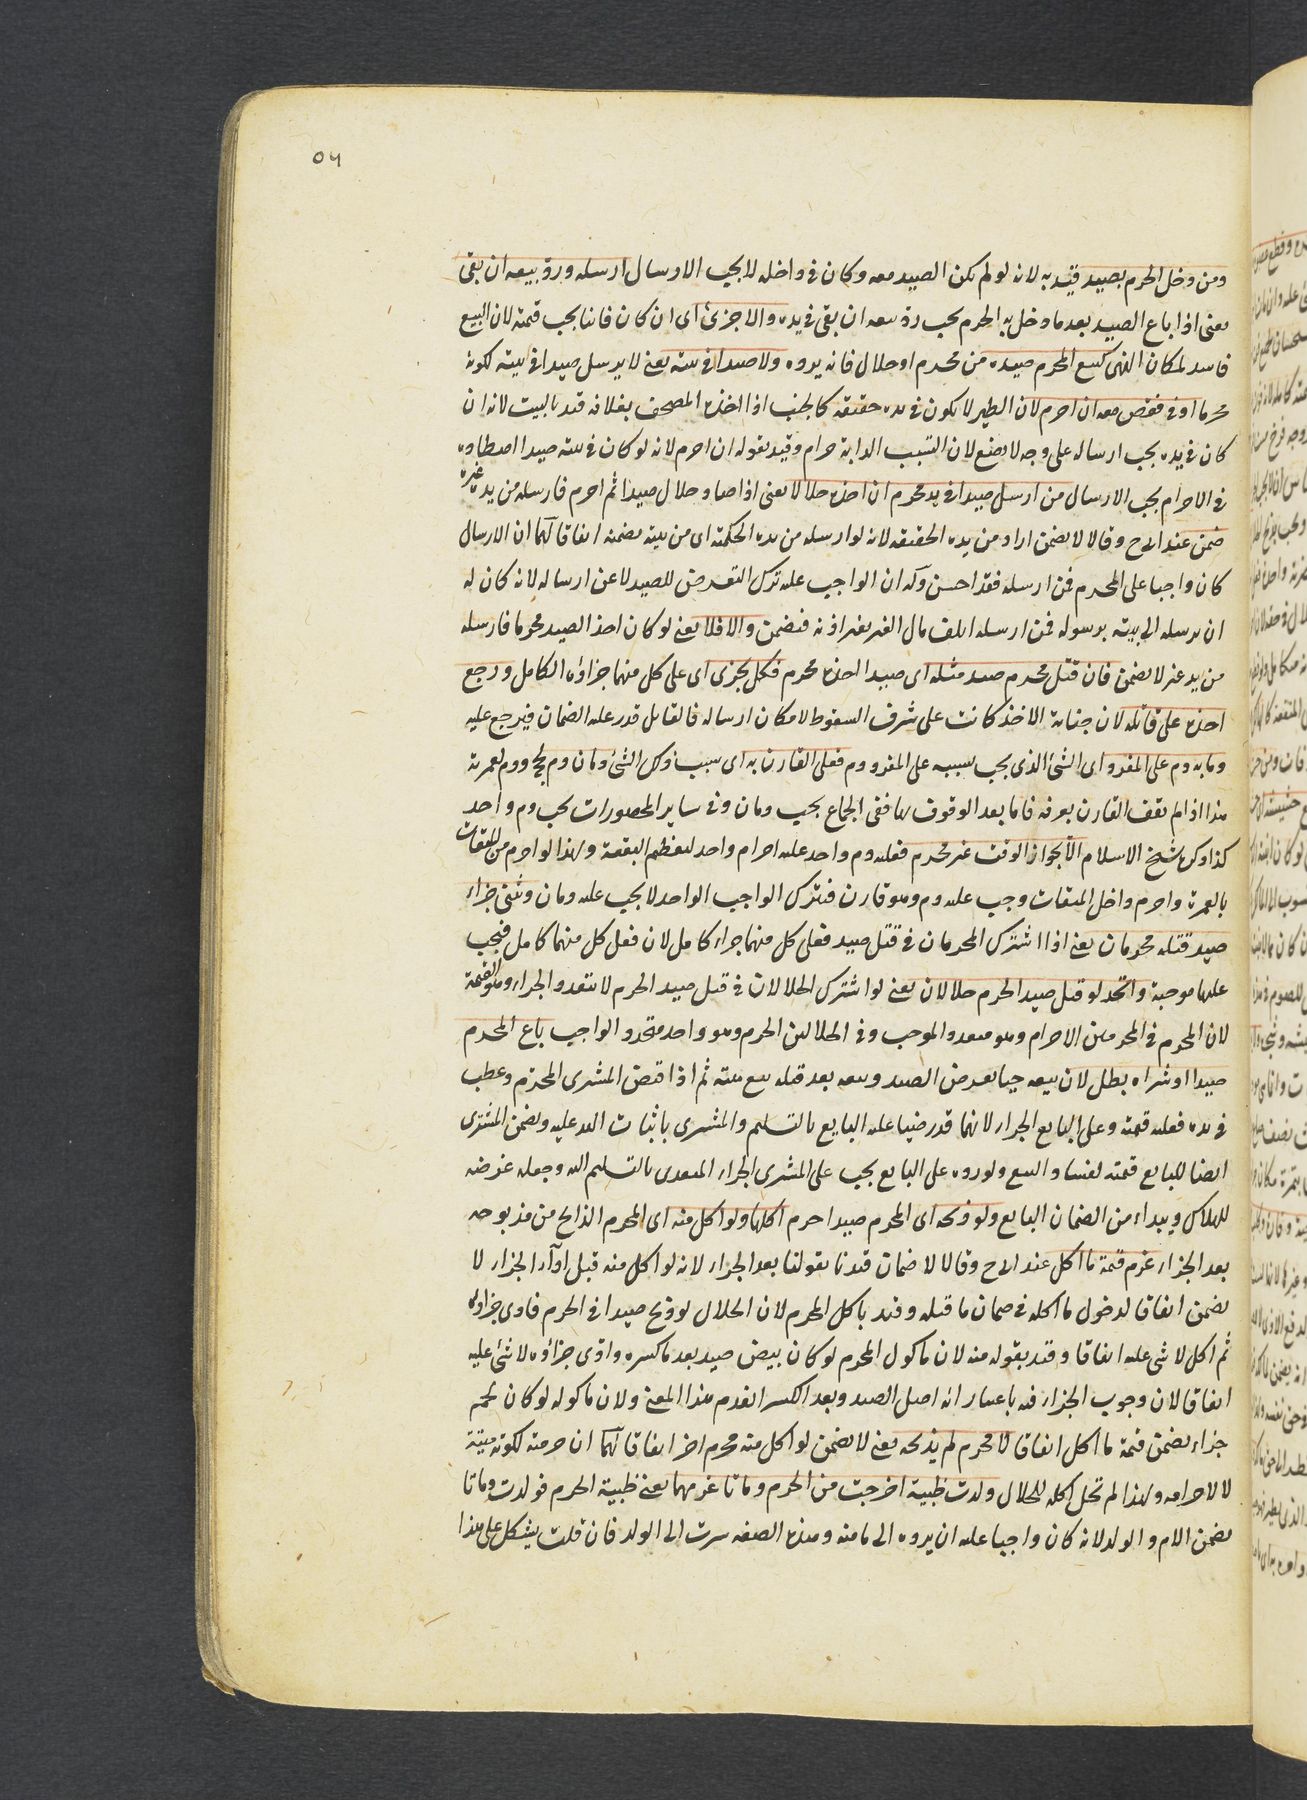 ٥٦
ومن دخل الحرم بصيد قيد به لانه لو لم يكن الصيد معه وكان في داخله لا يجب الارسال ارسله ورد بيعه ان بقى
يعنى اذا باع الصيد بعد ما دخل به الحرم يجب رد بيعه ان بقى في يده والا جزى اى ان كان فائتا يجب قيمته لان البيع
فاسد لمكان النهى كبيع المحرم صيده من محرم او حلال فانه يرده ولا صيدا في بيته يعنى لا يرسل صيدا في بيته لكونه
محرما او في قفص معه ان احرم لان الطير لا يكون في يده حقيقة كالجنب اذا اخذ المصحف بغلافه قيد بالبيت لانه ان
كان في يده يجب ارساله على وجه لا يضيع لان التسيب الدابة حرام وقيد بقوله ان احرم لانه لو كان في بيته صيدا اصطاده
في الاحرام يجب الارسال من ارسل صيدا في يد محرم ان اخذه حلالا يعنى اذا صاد حلال صيدا ثم احرم فارسله من يده غيره
ضمن عند ابى ح وقالا لا يضمن اراد من يده الحقيقة لانه لو ارسله من يده الحكمية اى من بيته يضمنه اتفاقا لهما ان الارسال
كان واجبا على المحرم فمن ارسله فقد احسن وله ان الواجب عليه ترك التعرض للصيد لا عن ارساله لانه كان له
ان يرسله الى بيته برسوله فمن ارسله اتلف مال الغير بغير اذنه فيضمن والا فلا يعنى لو كان اخذ الصيد محرما فارسله
من يد غيره لا يضمن فان قتل محرم صيد مثله اى صيدا اخذه محرم فكل يجزى اى على كل منهما جزاؤه الكامل ورجع
اخذه على قاتله لان جناية الاخذ كانت على شرف السقوط لامكان ارساله فالقاتل قرر عليه الضمان فيرجع عليه
وما به دم على المفرد اى الشئ الذى يجب بسببه على المفرد دم فعلى القارن به اى بسبب ذلك الشئ دمان دم لحجه ودم لعمرته
هذا اذا لم يقف القارن بعرفة فاما بعد الوقوف بها ففى الجماع يجب دمان وفى ساير المحظورات يجب دم واحد
كذا ذكره شيخ الاسلام الا بجواز الوقت غير محرم فعليه دم واحد عليه احرام واحد لتعظيم البقعة ولهذا لو احرم من الميقات
بالعمرة واحرم داخل الميقات وجب عليه دم وهو قارن فبترك الواجب الواحد لا يجب عليه دمان وثنى جزاء
صيد قتله محرمان يعنى اذا اشترك المحرمان في قتل صيد فعلى كل منهما جزاء كامل لان فعل كل منهما كامل فيجب
عليهما موجبه واتحد لو قتل صيد الحرم حلالان يعنى لو اشترك الحلالان في قتل صيد الحرم لا يتعدد الجزاء وهو القيمة
لان المحرم في المحرمين الاحرام وهو متعدد الموجب وفى الحلالين الحرم وهو واحد متحد والواجب باع المحرم
صيدا او شراه بطل لان بيعه حيا تعرض الصيد وبيعه بعد قتله بيع ميتة ثم اذا قبض المشترى المحرم وعطب
في يده فعليه قيمته وعلى البايع الجزاء لانهما قد رضيا عليه البايع بالتسليم والمشترى باثبات اليد عليه ويضمن المشترى
ايضا للبايع قيمته لفساد البيع ولو رده على البايع يجب على المشترى الجزاء المتعدى بالتسليم اليه وجعله عرضة
للهلاك ويبداء من الضمان البايع ولو ذبحه اى المحرم صيدا حرم اكلها ولو اكل منه اى المحرم الذابح من مذبوحه
بعد الجزاء غرم قيمة ما اكل عند ابى ح وقالا لا ضمان قيدنا بقولنا بعد الجزاء لانه لو اكل منه قبل اداء الجزاء لا
يضمن اتفاقا لدخول ما اكله في ضمان ما قتله وقيد باكل المحرم لان الحلال لو ذبح صيدا في الحرم فادى جزاؤه
ثم اكل لا شئ عليه اتفاقا وقيد بقوله منه لان ماكول المحرم لو كان بيض صيد بعد ما كسره وادى جزاؤه لا شئ عليه
اتفاقا لان وجوب الجزاء فيه باعتبار انه اصل الصيد وبعد الكسر انعدم هذا المعنى ولان ماكوله لو كان لحم
جزاء يضمن قيمة ما اكل اتفاقا لا محرم لم يذبحه يعنى لا يضمن لو اكل منه محرم اخر اتفاقا لهما ان حرمته لكونه ميتة
لا لاحرامه ولهذا لم تحل اكله للحلال ولدت ظبية اخرجت من الحرم وماتا غرمهما يعنى ظبية الحرم فولدت وماتا
يضمن الام والولد لانه كان واجبا عليه ان يرده الى مامنه وهذه الصفة سرت الى الولد فان قلت يشكل على هذا